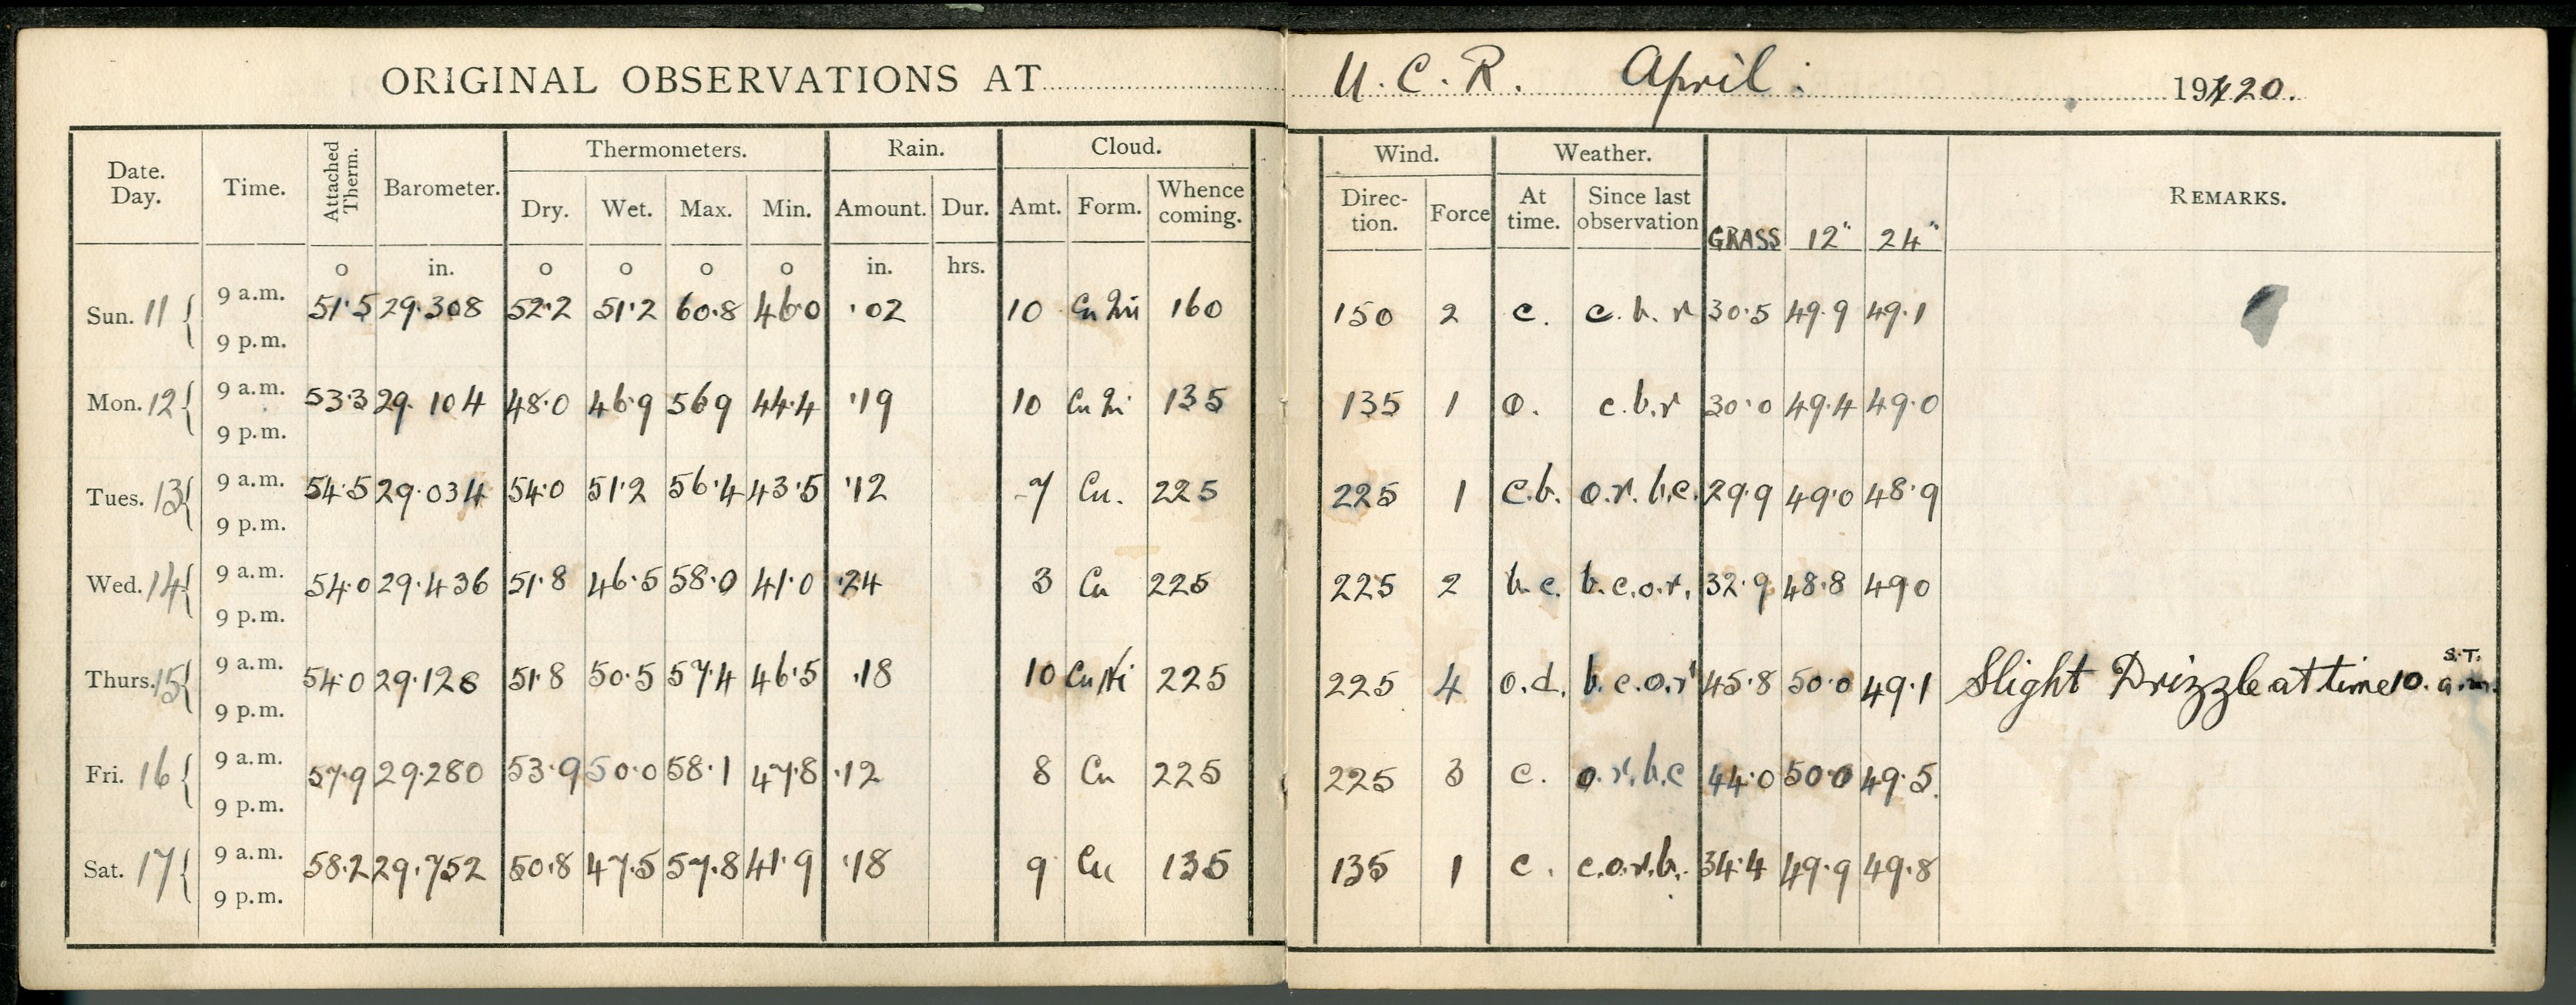 ORIGINAL OBSERVATIONS AT U. C. R. April: 1920.
Date. Day. Time. Attached Therm. Barometer. Thermometers. Rain. Cloud. Wind. Weather. REMARKS.
Dry. Wet. Max. Min. Amount. Dur. Amt. Form. Whence coming. Direc-tion. Force At time. Since last observation GRASS 12" 24"
o in. o o o o in. hrs.
Sun. 11 9 a.m. 51.5 29.308 52.2 51.2 60.8 46.0 .02 10 Cu Ni 160 150 2 c. c. b. r 30.5 49.9 49.1
9 p.m.
Mon. 12 9 a.m. 53.3 29.104 48.0 46.9 569 44.4 .19 10 Cu Ni 135 135 1 o. c.b.r 30.0 49.4 49.0
9 p.m.
Tues. 13 9 a.m. 54.5 29.034 54.0 51.2 56.4 43.5 .12 7 Cu. 225 225 1 c.b. o.r.b.c. 29.9 49.0 48.9
9 p.m.
Wed. 14 9 a.m. 54.0 29.436 51.8 46.5 58.0 41.0 .24 3 Cu 225 225 2 b.c. b.c.o.r. 32.9 48.8 490
9 p.m.
Thurs. 15 9 a.m. 54.0 29.128 51.8 50.5 57.4 46.5 .18 10 Cu Ni 225 225 4 o.d. b.c.o.r 45.8 50.0 49.1 Slight Drizzle at time 10. S.T. a.m.
9 p.m.
Fri. 16 9 a.m. 57.9 29.280 53.9 50.0 58.1 47.8 .12 8 Cu 225 225 3 c. o.r.b.c 44.0 50.0 49.5.
9 p.m.
Sat. 17 9 a.m. 58.2 29.752 50.8 47.5 57.8 41.9 .18 9 Cu 135 135 1 c. c.o.r.b. 34.4 49.9 49.8
9 p.m.